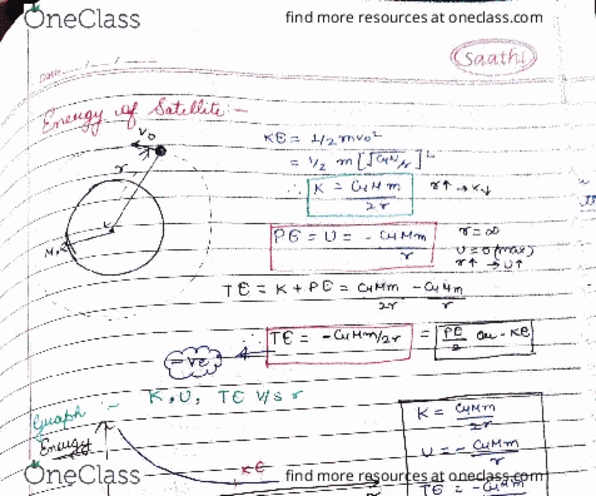 OneClass
find more resources at oneclass.com
Saathi
Date ___/___/___
Energy of Satellite :-
V₀
r
M,
KE = 1/2 mv₀²
= 1/2 m [√GM/r]²
∴ K = GMm/2r r↑ → K↓
PE = U = - GMm/r
r = ∞
U = 0 (max)
r↑ → U↑
TE = K + PE = GMm/2r - GMm/r
∴ TE = -GMm/2r = PE/2 or - KE
-ve
Graph :- K, U, TE v/s r
Energy
KE
K = GMm/2r
U = - GMm/r
TE = - GMm
OneClass
find more resources at oneclass.com